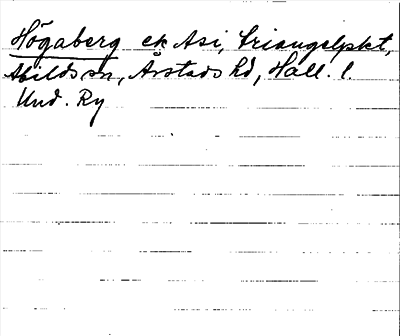 Högaberg ek Asi, triangelpkt,
Abilds sn, Årstads hd, Hall. l.
Und. Ry